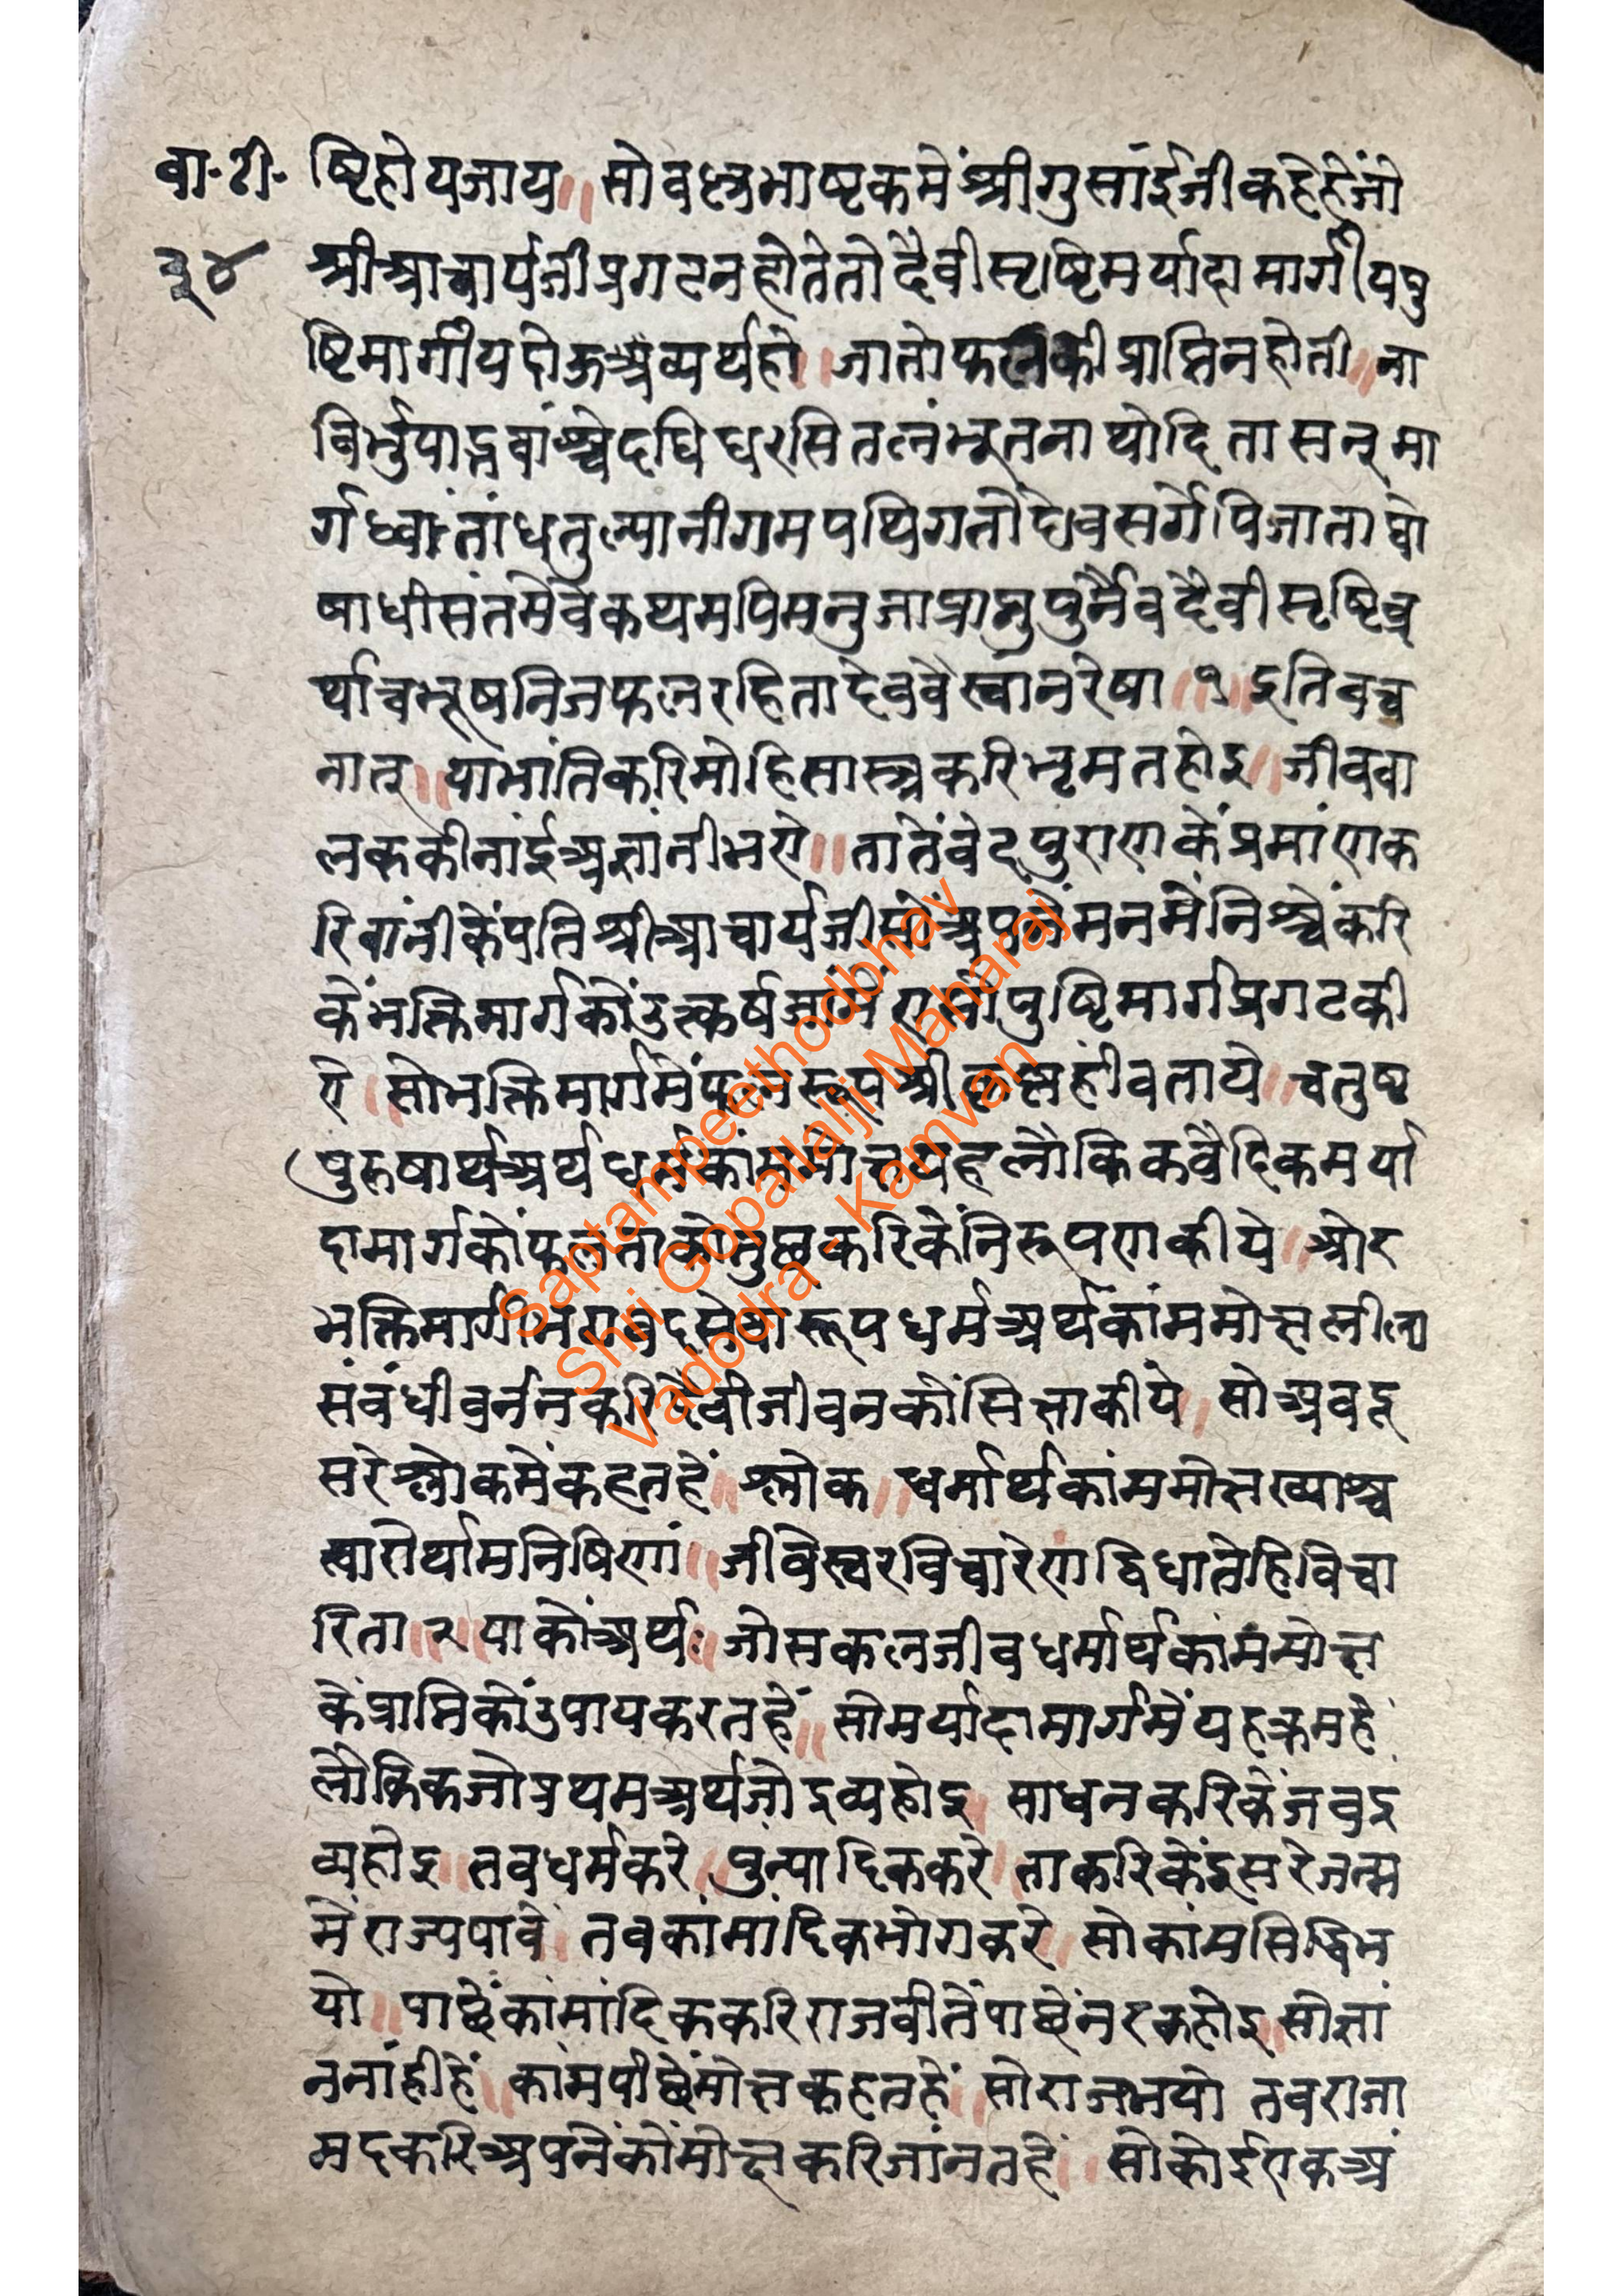 बा॰टी॰ ष्टिहोयजाय॥ सोवल्लभाष्टकमेंश्रीगुसांईजीकहेहेंजो
३४ श्रीआचार्यजीप्रगटनहोतेतोदैवीसृष्टिमर्यादामार्गीयपु
ष्टिमार्गीयदोऊअव्यर्थहो। जातोफलकीप्राप्तिनहोती॥ ना
विर्भुयाद्भवांश्चेदधिधरसितलंभूतनाथोदितासन्मा
र्गध्वांतांधतुल्यानीगमपथिगतौदेवसर्गेपिजाताघो
षाधीसंतमेवंकथमपिमनुजाप्राप्नुयुर्नैवदैवीसृष्टिव्य
र्थाचभूषनिजफलरहितादेववैस्वानरेषा॥१॥इतिवच
नात्॥ याभांतिकरिमोहिसास्त्रकरिभृमतहोइ॥ जीवबा
लककीनांईअज्ञांनीभए॥ तातेंवेदपुराणकेंप्रमांणक
रिवांनीकेंपतिश्रीआचार्यजीसोंअपनेंमनमेंनिश्चेंकरि
केंभक्तिमार्गकोंउत्कर्षजामेंएसोपुष्टिमार्गप्रगटकी
ए॥ सोभक्तिमार्गमेंफलरूपश्रीकृष्णहींवताये॥ चतुष्ट
पुरुषार्थअर्थधर्मकांममोक्षयहलौकिकवैदिकमर्या
दामार्गकोंफलताकोतुछकरिकेंनिरूपणकीये॥ ओर
भक्तिमार्गीभगवदसेवारूपधर्मअर्थकांममोक्षलीला
संबंधीवर्ननकरिदैवीजीवनकोंसिक्षाकीये॥ सोअबदू
सरेश्लोकमेंकहतहें॥ श्लोक॥ धर्मार्थकांममोक्षख्याश्च
त्वारोर्थामनिषिणां॥ जीवेस्वरविचारेणद्विधातेहिविचा
रिता॥२॥याकोंअर्थः॥ जोसकलजीवधर्मार्थकांममोक्ष
केंप्राप्तिकोंउपायकरतहें॥ सोमर्यादामार्गमेंयहक्रमहै
लौकिकजोप्रथमअर्थजोद्रव्यहोइ॥ साधनकरिकेंजबद्र
व्यहोइ॥ तबधर्मकरे॥ पुन्यादिककरे॥ ताकरिकेंदूसरेजन्म
मेंराज्यपावें॥ तबकांमांदिकभोगकरे॥ सोकांमसिद्धिभ
यो॥ पाछेंकांमांदिककरिराजबीतेंपाछेंनरकहोइ॥ सोज्ञां
ननांहीहें॥ कांमपीछेंमोक्षकहतहें॥ सोराजभयो तबराजा
मदकरिअपनेंकोंमोक्षकरिजांनतहें॥ सोकोईएकअं
Saptampeethodbhav
Shri Gopallalji Maharaj
Vadodra - Kamvan